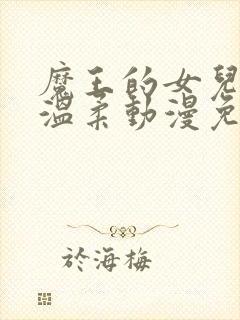 魔王的女兒
溫柔動漫免
於海梅